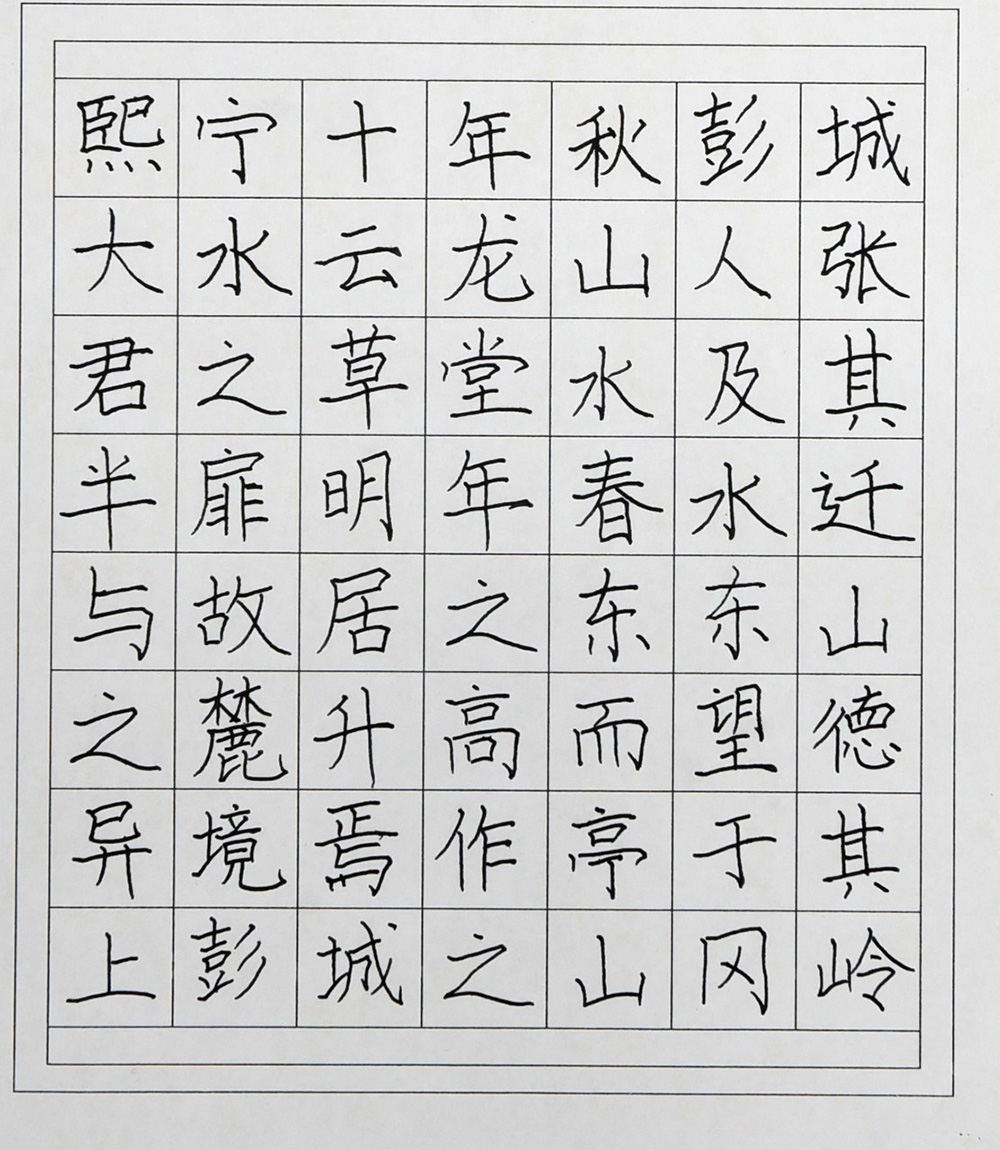 熙宁十年秋彭城
大水云龙山人张
君之草堂水及其
半扉明年春水迁
与故居之东东山
之麓升高而望德
异境焉作亭于其
上彭城之山冈岭